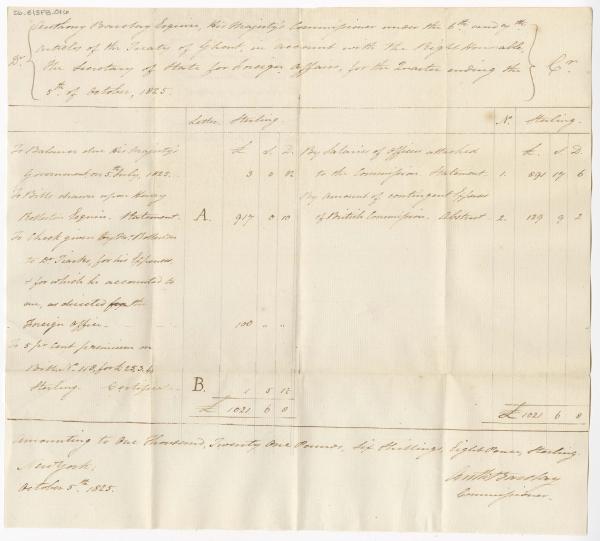 Anthony Barclay Esquire, His Majesty's Commissioner under the 6th and 7th
Dr. Articles of the Treaty of Ghent, in account with the Right Honorable, Cr.
the Secretary of State for Foreign Affairs, for the Quarter ending the
5th of October, 1825.
Letter Sterling. No. Sterling.
£. S. D. £. S. D.
To Balance due His Majesty's By Salaries of Officers attached
Government on 5th July, 1825. 3 0 to the Commission. Statement 1. 891 17 6
To Bills drawn upon Henry By Amount of contingent Expenses
Rolleston Esquire. Statement. A. 917 0 10 of British Commission. Abstract 2. 129 9 2
To Check given by Mr. Rolleston
to Dr. Tiarks, for his Expenses,
& for which he accounted to
me, as directed from the
Foreign Office. 100 " "
To 5 pr Cent premium on
No. 118, for £
Sterling. Certificate B. 1 5
£ 1021 6 8 £ 1021 6 8
amounting to One Thousand, Twenty One Pounds, Six Shillings, Eight Pence, Sterling.
New York,
October 5th 1825.
Anth Barclay
Commissioner.